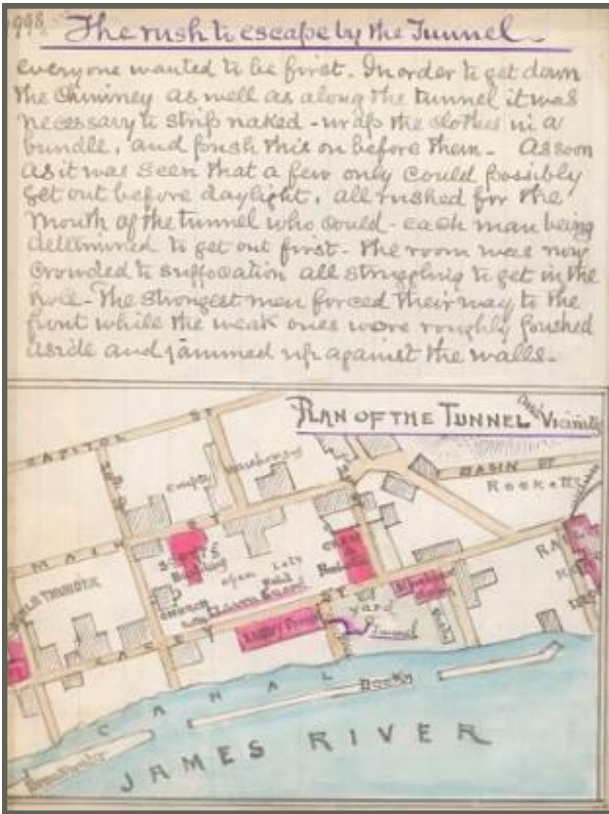 The rush to escape by the Tunnel
everyone wanted to be first. In order to get down
the Chimney as well as along the tunnel it was
necessary to strip naked - wrap the clothes in a
bundle, and push this on before them. As soon
as it was seen that a few only could possibly
get out before daylight, all rushed for the
mouth of the tunnel who could - each man being
determined to get out first - the room was now
crowded to suffocation all struggling to get in the
hole - The strongest men forced their way to the
front while the weak ones were roughly pushed
aside and jammed up against the walls -
PLAN OF THE TUNNEL and Vicinity
CAPITOL ST
BASIN ST
Rocketts
empty
warehouses
MAIN ST
open Lots
CHURCH
CAREY ST
yard
Tunnel
CANAL
Docks
JAMES RIVER